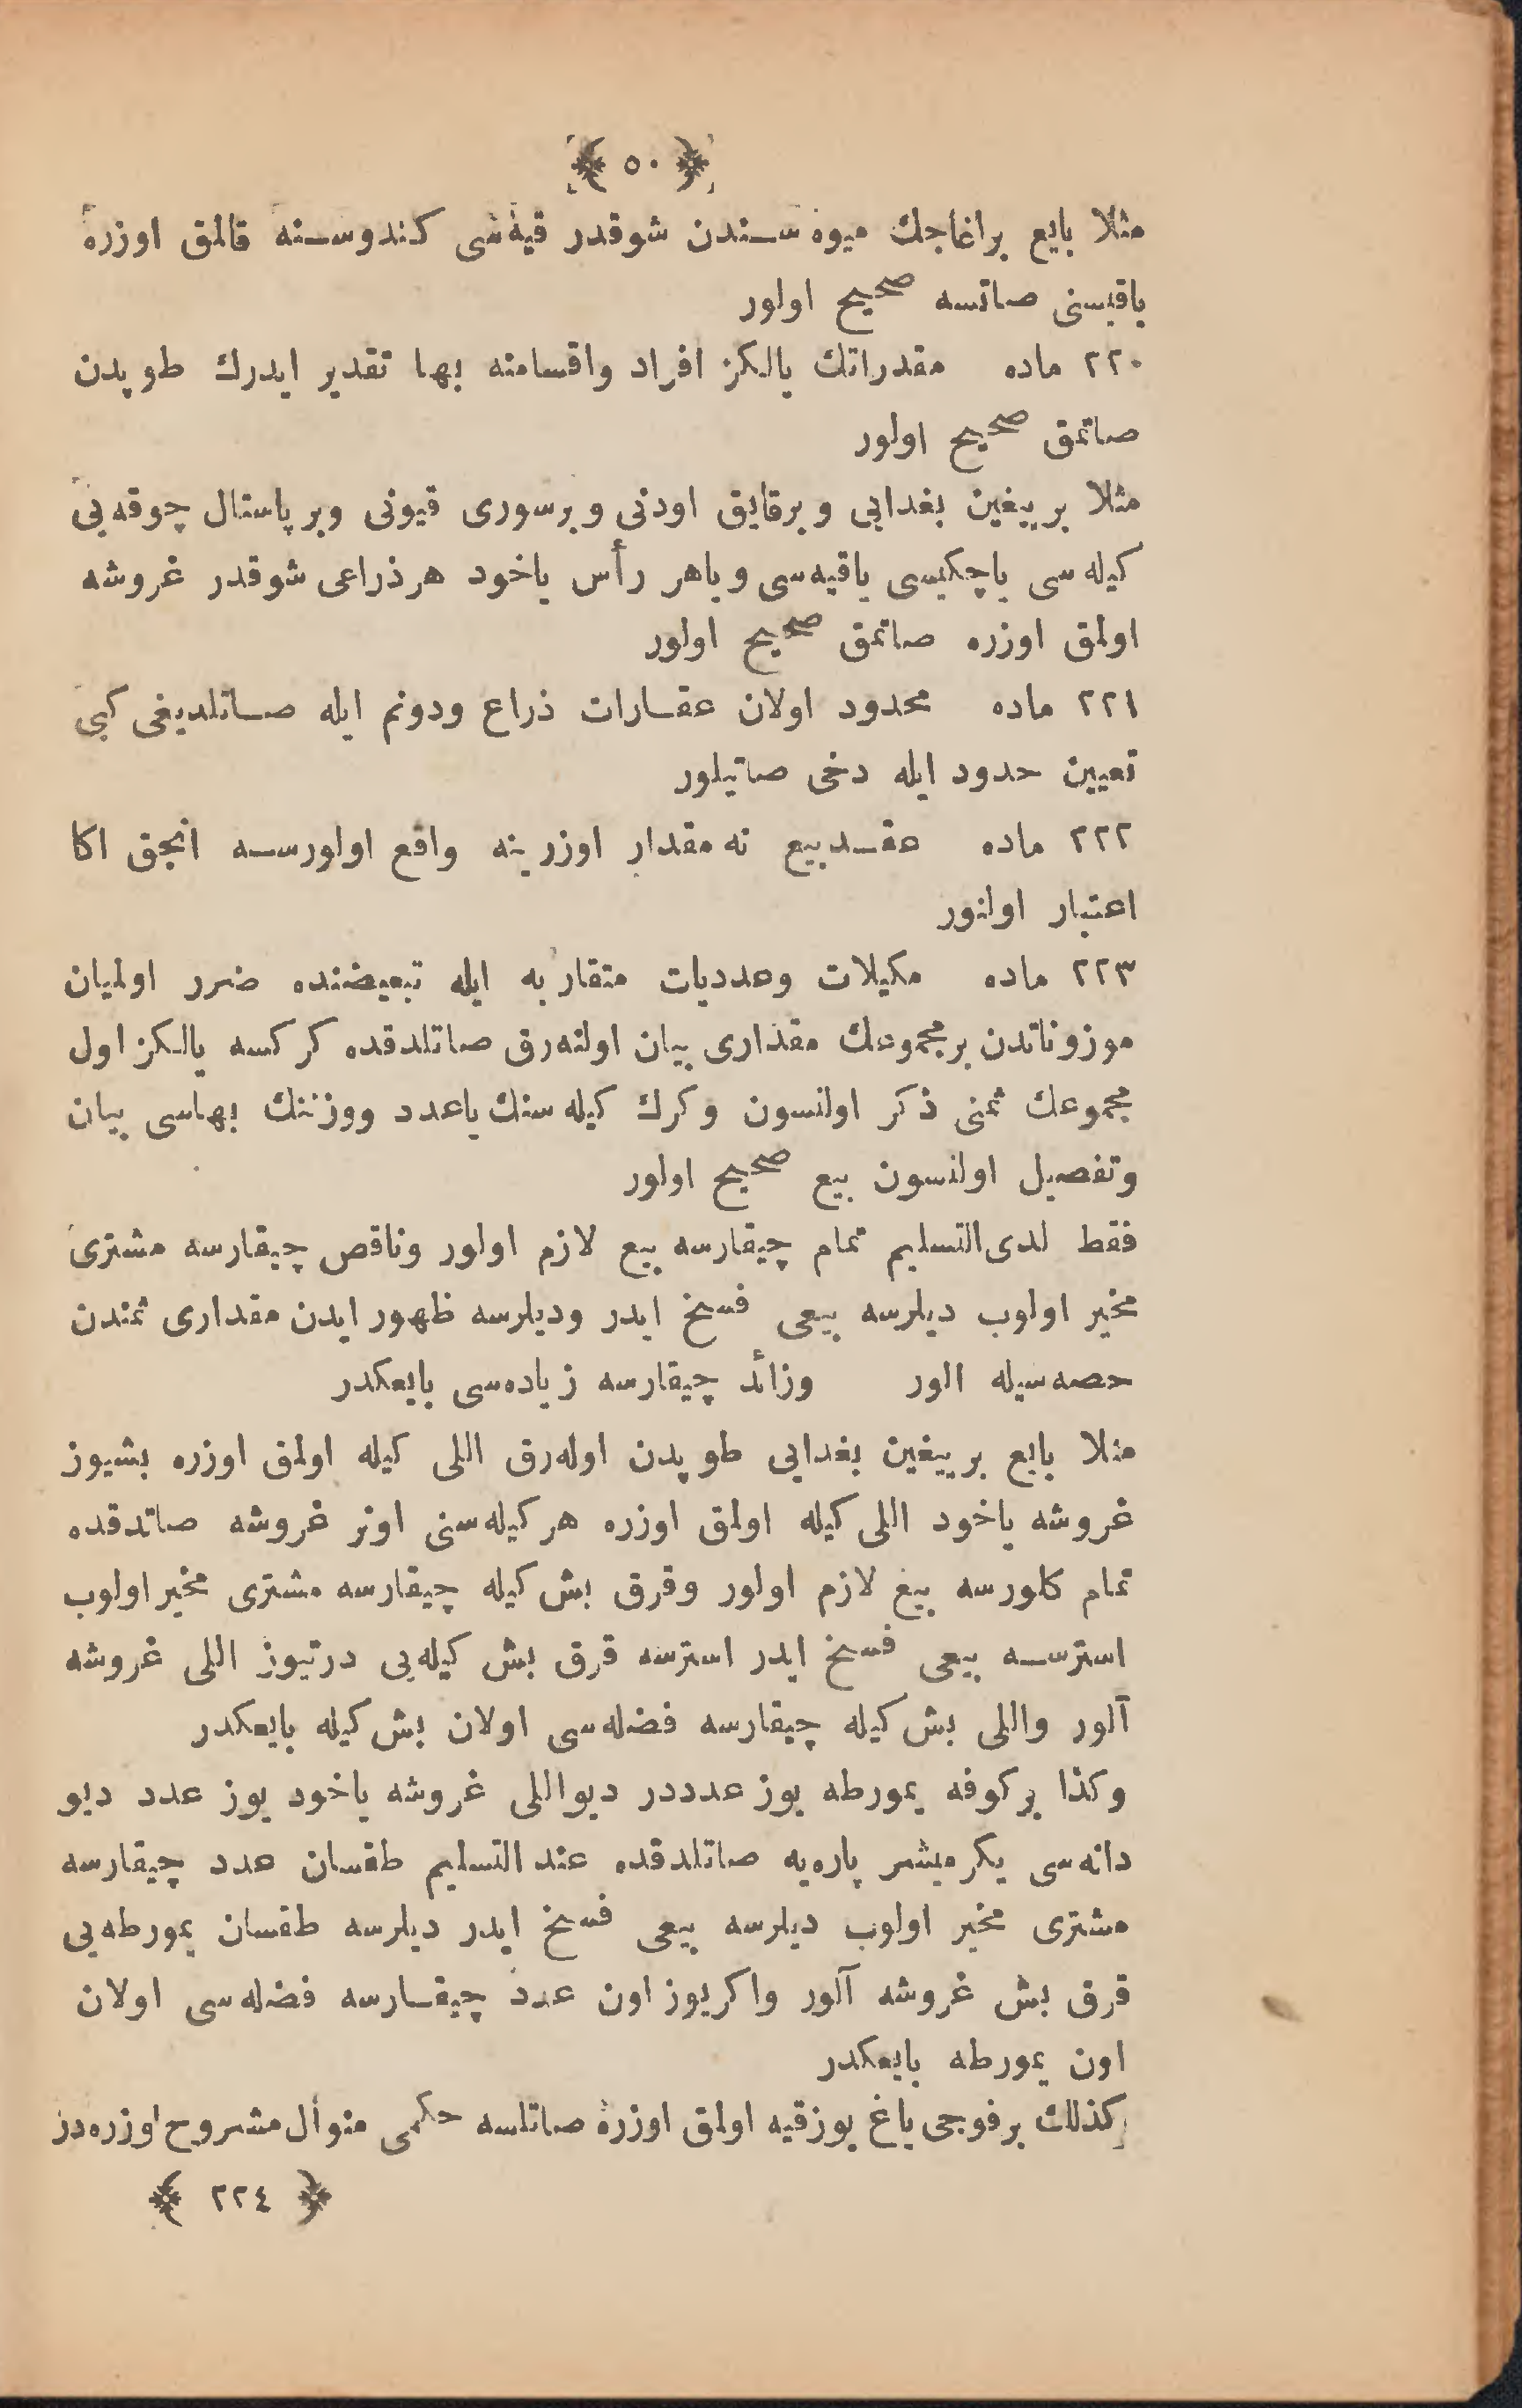 ﴿ ٥٠ ﴾
مثلا بايع براغاجك ميوه سندن شوقدر قيه سى كندوسنه قالمق اوزره
باقيسنى صاتسه صحيح اولور
٢٢٠ ماده مقدراتك يالكز افراد واقسامنه بها تقدير ايدرك طوپدن
صاتمق صحيح اولور
مثلا بر ييغين بغدايى و برقايق اودنى و برسورى قيونى وبر پاستال چوقه يى
كيله سى ياچكيسى ياقيه سى و ياهر رأس ياخود هر ذراعى شوقدر غروشه
اولمق اوزره صاتمق صحيح اولور
٢٢١ ماده محدود اولان عقارات ذراع ودونم ايله صاتلديغى كبى
تعيين حدود ايله دخى صاتيلور
٢٢٢ ماده عقد بيع نه مقدار اوزرينه واقع اولورسه انجق اكا
اعتبار اولنور
٢٢٣ ماده مكيلات وعدديات متقاربه ايله تبعيضنده ضرر اولميان
موزوناتدن بر مجموعك مقدارى بيان اولنه رق صاتلدقده كركسه يالكز اول
مجموعك ثمنى ذكر اولنسون وكرك كيله سنك ياعدد ووزننك بهاسى بيان
وتفصيل اولنسون بيع صحيح اولور
فقط لدى التسليم تمام چيقارسه بيع لازم اولور وناقص چيقارسه مشترى
مخير اولوب ديلرسه بيعى فسخ ايدر وديلرسه ظهور ايدن مقدارى ثمندن
حصه سيله الور وزائد چيقارسه زياده سى بايعكدر
مثلا بايع بر ييغين بغدايى طوپدن اوله رق اللى كيله اولمق اوزره بشيوز
غروشه ياخود اللى كيله اولمق اوزره هر كيله سنى اونر غروشه صاتدقده
تمام كلورسه بيع لازم اولور وقرق بش كيله چيقارسه مشترى مخير اولوب
استرسه بيعى فسخ ايدر استرسه قرق بش كيله يى درتيوز اللى غروشه
آلور واللى بش كيله چيقارسه فضله سى اولان بش كيله بايعكدر
وكذا بر كوفه يمورطه يوز عدددر ديو اللى غروشه ياخود يوز عدد ديو
دانه سى يكرميشر پاره يه صاتلدقده عند التسليم طقسان عدد چيقارسه
مشترى مخير اولوب ديلرسه بيعى فسخ ايدر ديلرسه طقسان يمورطه يى
قرق بش غروشه آلور واكر يوز اون عدد چيقارسه فضله سى اولان
اون يمورطه بايعكدر
كذلك بر فوجى ياغ يوز قيه اولمق اوزره صاتلسه حكمى منوال مشروح اوزره در
﴿ ٢٢٤ ﴾